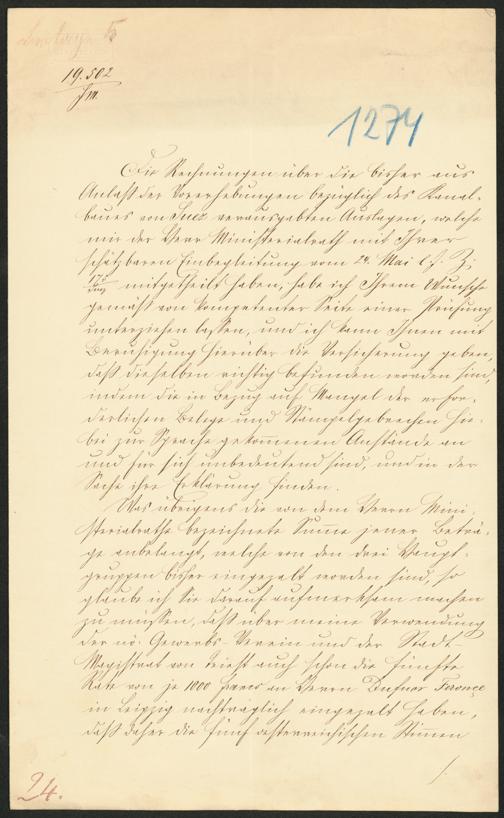 19.502
1274
Die Rechnungen über die bisher aus
Anlaß der Vorerhebungen bezüglich des Kanal-
baues von Suez verausgabten Auslagen, welche
mir der Herr Ministerialrath mit Ihrer
schätzbaren Einbegleitung vom 24. Mai l. J. Z.
mitgetheilt haben, habe ich Ihrem Wunsche
gemäß von kompetenter Seite einer Prüfung
unterziehen lassen, und ich kann Ihnen mit
Beruhigung hierüber die Versicherung geben,
daß dieselben richtig befunden worden sind,
indem die in Bezug auf Mangel der erfor-
derlichen Belege und Stämpelgebrechen hie-
bei zur Sprache gekommenen Anstände an
und für sich unbedeutend sind, und in der
Sache ihre Erklärung finden.
Was übrigens die von dem Herrn Mini-
sterialrathe bezeichnete Summe jener Beträ-
ge anbelangt, welche von den drei Haupt-
gruppen bisher eingezalt worden sind, so
glaube ich Sie darauf aufmerksam machen
zu müssen, daß über meine Verwendung
der nö. Gewerbs-Verein und der Stadt-
Magistrat von Triest auch schon die fünfte
Rate von je 1000 francs an Herrn Dufour Feronce
in Leipzig nachträglich eingezalt haben,
daß daher die fünf österreichischen Stimmen
./.
24.